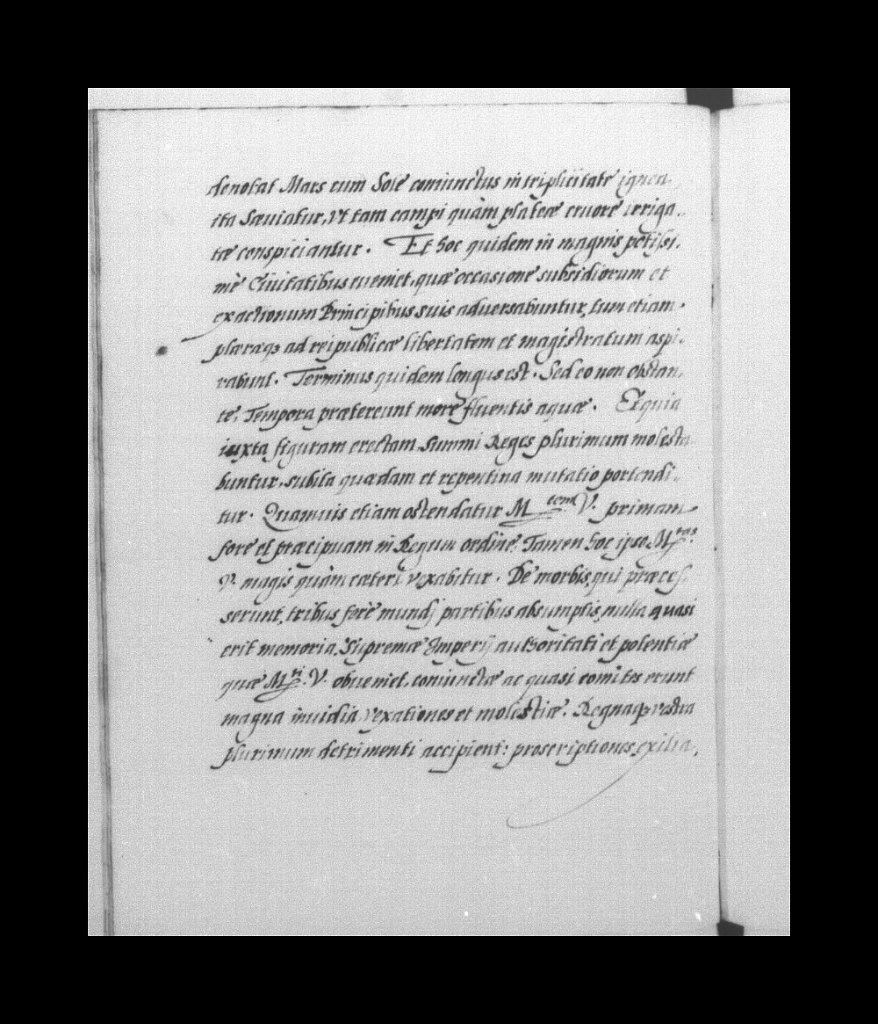 denotat Mars cum Sole coniunctus in triplicitate ignea
ita sæuiatur, vt tam campi quàm plateæ cruore irriga-
tæ conspiciantur. Et hoc quidem in magnis potissi-
mè Ciuitatibus eueniet, quæ occasione subsidiorum et
exactionum Principibus suis aduersabuntur, tum etiam
plæraqȝ ad reipublicæ libertatem et magistratum aspi-
rabunt. Terminus quidem longus est. Sed eo non obstan-
te, Tempora prætereunt more fluentis aquæ. Et quia
iuxta figuram erectam, summi Reges plurimum molesta
buntur, subita quædam et repentina mutatio portendi-
tur. Quamuis etiam ostendatur M. tem V. primam
fore et præcipuam in Regum ordine. Tamen hoc ipso M. tas
V. magis quàm cæteri vexabitur. De morbis, qui præces-
serunt, tribus ferè mundj partibus absumptis, nulla quasi
erit memoria. Supremæ Imperij authoritati et potentiæ
quæ M. ti V. obueniet, coniunctæ ac quasi comites erunt
magna inuidia, vexationes et molestiæ. Regnaqȝ vestra
plurimum detrimenti accipient: proscriptiones, exilia,